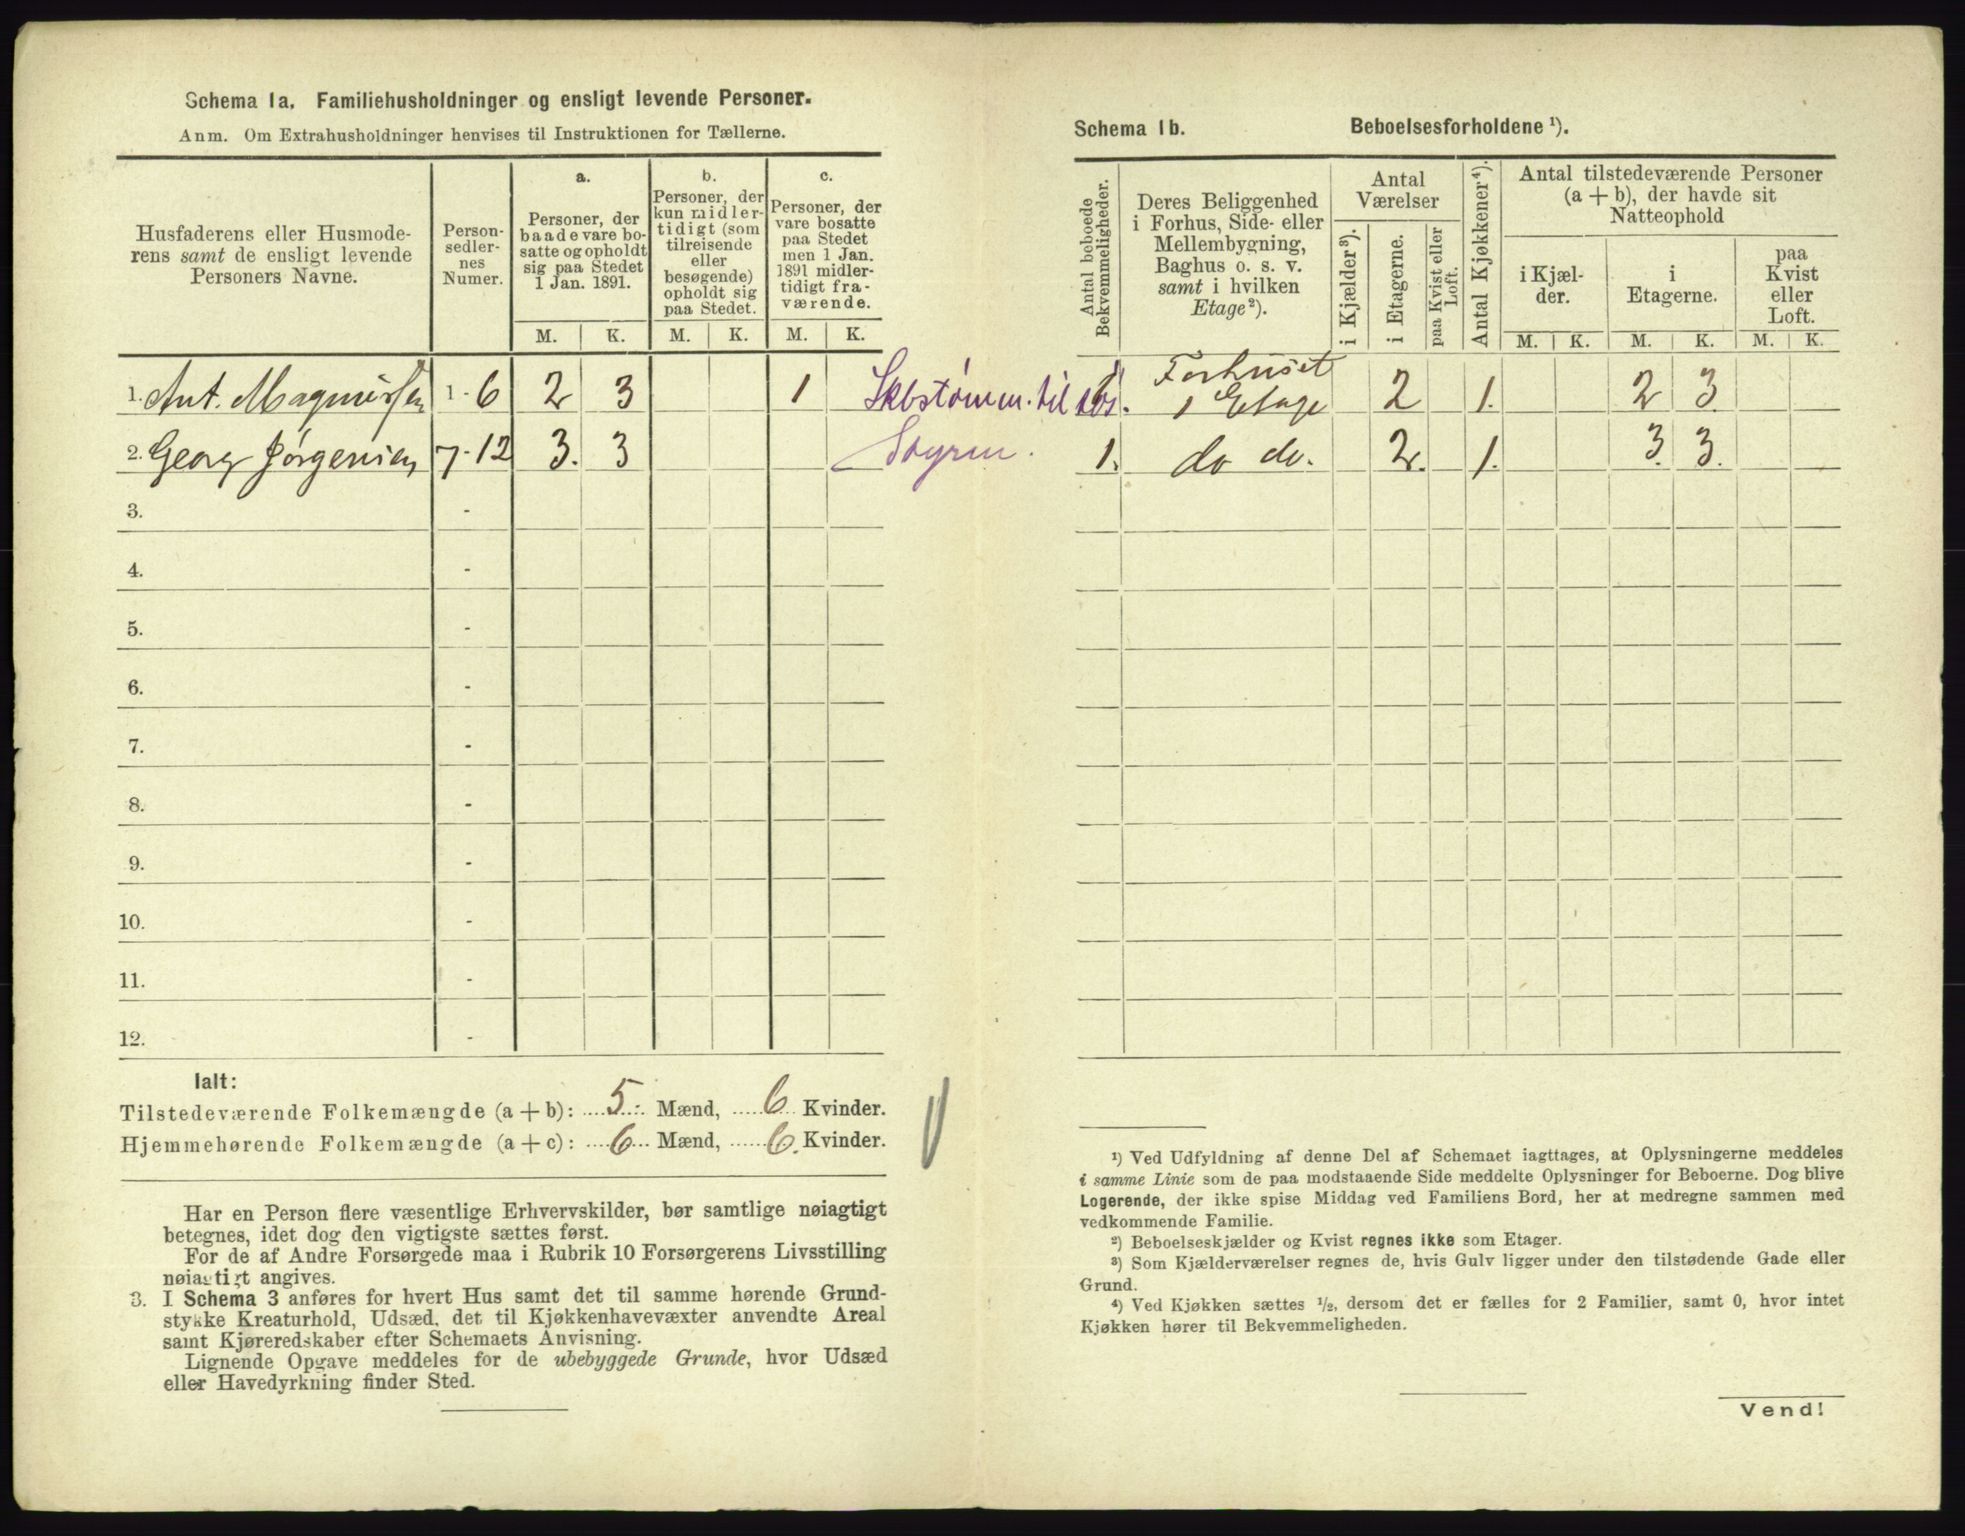 Schema 1a. Familiehusholdninger og ensligt levende Personer.
Anm. Om Extrahusholdninger henvises til Instruktionen for Tællerne.
Husfaderens eller Husmode-
rens samt de ensligt levende
Personers Navne.
Person-
sedler-
nes
Numer.
a.
Personer, der
baade vare bo-
satte og opholdt
sig paa Stedet
1 Jan. 1891.
b.
Personer, der
kun midler-
tidigt (som
tilreisende
eller
besøgende)
opholdt sig
paa Stedet.
c.
Personer, der
vare bosatte
paa Stedet
men 1 Jan.
1891 midler-
tidigt fra-
værende.
M. K. M. K. M. K.
1. Ant. Magnussen 1-6 2 3 1 Skbstømm. til
2. Georg Jørgensen 7-12 3. 3
3. -
4. -
5. -
6. -
7. -
8. -
9. -
10. -
11. -
12. -
Ialt:
Tilstedeværende Folkemængde (a + b): 5 Mænd, 6 Kvinder.
Hjemmehørende Folkemængde (a + c): 6 Mænd, 6. Kvinder.
Har en Person flere væsentlige Erhvervskilder, bør samtlige nøiagtigt
betegnes, idet dog den vigtigste sættes først.
For de af Andre Forsørgede maa i Rubrik 10 Forsørgerens Livsstilling
nøiagtigt angives.
3. I Schema 3 anføres for hvert Hus samt det til samme hørende Grund-
stykke Kreaturhold, Udsæd, det til Kjøkkenhavevæxter anvendte Areal
samt Kjøreredskaber efter Schemaets Anvisning.
Lignende Opgave meddeles for de ubebyggede Grunde, hvor Udsæd
eller Havedyrkning finder Sted.
Schema 1b. Beboelsesforholdene ¹).
Antal beboede
Bekvemmeligheder.
Deres Beliggenhed
i Forhus, Side- eller
Mellembygning,
Baghus o. s. v.
samt i hvilken
Etage²).
Antal
Værelser
i Kjælder³).
i Etagerne.
paa Kvist eller
Loft.
Antal Kjøkkener⁴).
Antal tilstedeværende Personer
(a + b), der havde sit
Natteophold
i Kjæl-
der.
i
Etagerne.
paa
Kvist
eller
Loft.
M. K. M. K. M. K.
Forhuset
1 Etage 2 1. 2 3
1. do do. 2. 1. 3. 3.
¹) Ved Udfyldning af denne Del af Schemaet iagttages, at Oplysningerne meddeles
i samme Linie som de paa modstaaende Side meddelte Oplysninger for Beboerne. Dog blive
Logerende, der ikke spise Middag ved Familiens Bord, her at medregne sammen med
vedkommende Familie.
²) Beboelseskjælder og Kvist regnes ikke som Etager.
³) Som Kjælderværelser regnes de, hvis Gulv ligger under den tilstødende Gade eller
Grund.
⁴) Ved Kjøkken sættes ½, dersom det er fælles for 2 Familier, samt 0, hvor intet
Kjøkken hører til Bekvemmeligheden.
Vend!